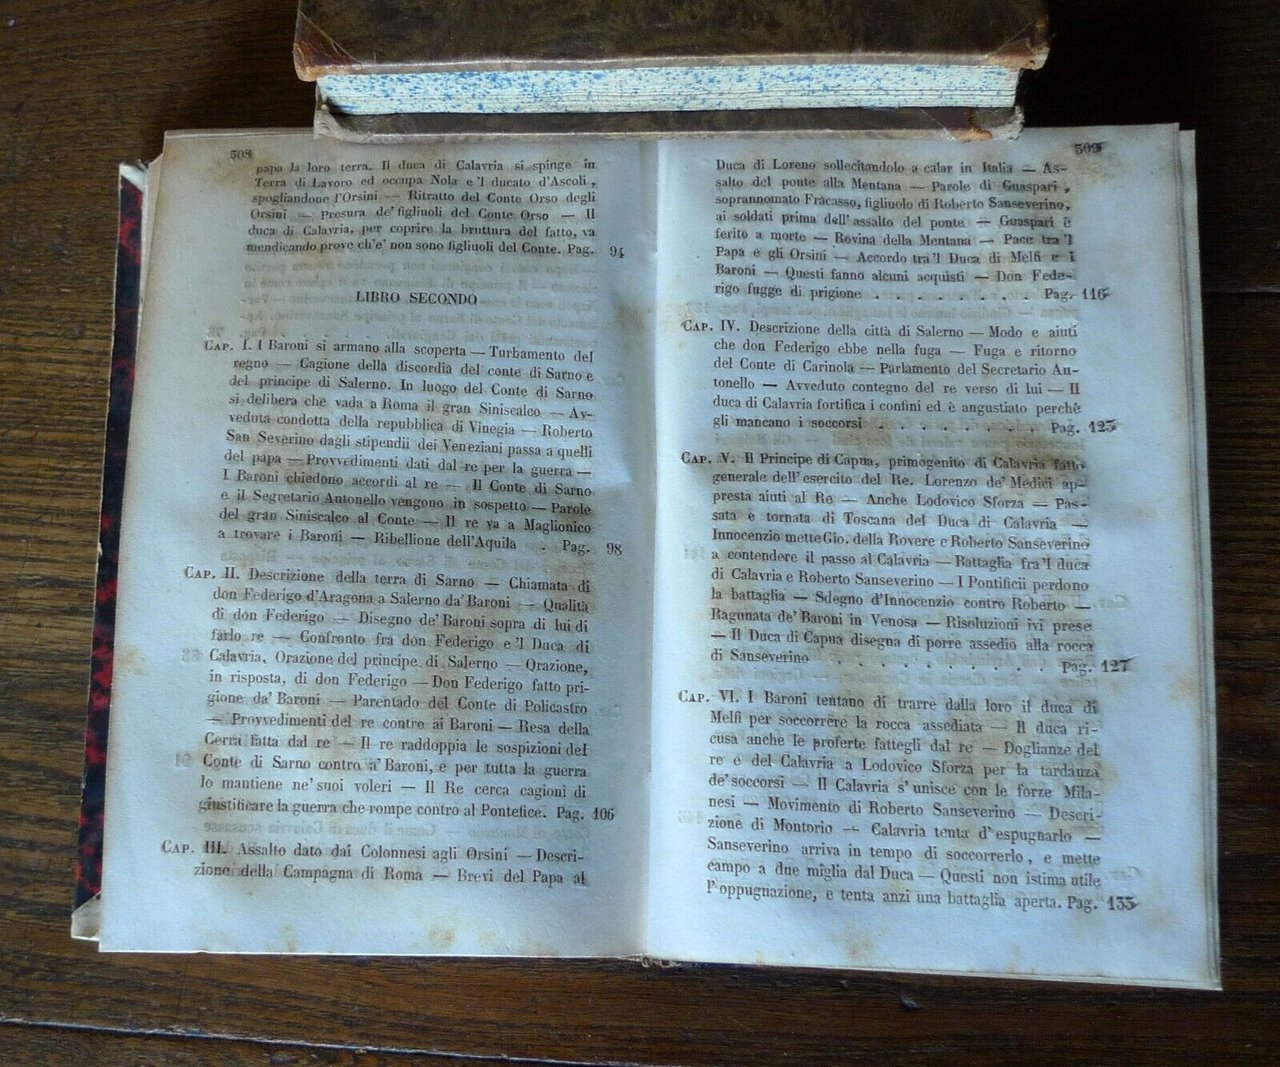 508
papa la loro terra. Il duca di Calavria si spinge in
Terra di Lavoro ed occupa Nola e'l ducato d'Ascoli,
spogliandone l'Orsini — Ritratto del Conte Orso degli
Orsini — Presura de' figliuoli del Conte Orso — Il
duca di Calavria, per coprire la bruttura del fatto, va
mendicando prove ch'e' non sono figliuoli del Conte. Pag. 94
LIBRO SECONDO
CAP. I. I Baroni si armano alla scoperta — Turbamento del
regno — Cagione della discordia del conte di Sarno e
del principe di Salerno. In luogo del Conte di Sarno
si delibera che vada a Roma il gran Siniscalco — Av-
veduta condotta della repubblica di Vinegia — Roberto
San Severino dagli stipendii dei Veneziani passa a quelli
del papa — Provvedimenti dati dal re per la guerra —
I Baroni chiedono accordi al re — Il Conte di Sarno
e il Segretario Antonello vengono in sospetto — Parole
del gran Siniscalco al Conte — Il re va a Maglionico
a trovare i Baroni — Ribellione dell'Aquila . Pag. 98
CAP. II. Descrizione della terra di Sarno — Chiamata di
don Federigo d'Aragona a Salerno da' Baroni — Qualità
di don Federigo — Disegno de' Baroni sopra di lui di
farlo re — Confronto fra don Federigo e'l Duca di
Calavria. Orazione del principe di Salerno — Orazione,
in risposta, di don Federigo — Don Federigo fatto pri-
gione da' Baroni — Parentado del Conte di Policastro
— Provvedimenti del re contro ai Baroni — Resa della
Cerra fatta dal re — Il re raddoppia le sospizioni del
Conte di Sarno contro a' Baroni, e per tutta la guerra
lo mantiene ne' suoi voleri — Il Re cerca cagioni di
giustificare la guerra che rompe contro al Pontefice. Pag. 106
CAP. III. Assalto dato dai Colonnesi agli Orsini — Descri-
zione della Campagna di Roma — Brevi del Papa al
509
Duca di Loreno sollecitandolo a calar in Italia — As-
salto del ponte alla Mentana — Parole di Guaspari,
soprannomato Fracasso, figliuolo di Roberto Sanseverino,
ai soldati prima dell'assalto del ponte — Guaspari è
ferito a morte — Rovina della Mentana — Pace tra'l
Papa e gli Orsini — Accordo tra'l Duca di Melfi e i
Baroni — Questi fanno alcuni acquisti — Don Fede-
rigo fugge di prigione . . . . . . . . . Pag. 116
CAP. IV. Descrizione della città di Salerno — Modo e aiuti
che don Federigo ebbe nella fuga — Fuga e ritorno
del Conte di Carinola — Parlamento del Secretario An-
tonello — Avveduto contegno del re verso di lui — Il
duca di Calavria fortifica i confini ed è angustiato perchè
gli mancano i soccorsi . . . . . . . . . Pag. 123
CAP. V. Il Principe di Capua, primogenito di Calavria fatto
generale dell'esercito del Re. Lorenzo de' Medici ap-
presta aiuti al Re — Anche Lodovico Sforza — Pas-
sata e tornata di Toscana del Duca di Calavria —
Innocenzio mette Gio. della Rovere e Roberto Sanseverino
a contendere il passo al Calavria — Battaglia fra'l duca
di Calavria e Roberto Sanseverino — I Pontificii perdono
la battaglia — Sdegno d'Innocenzio contro Roberto —
Ragunata de' Baroni in Venosa — Risoluzioni ivi prese
— Il Duca di Capua disegna di porre assedio alla rocca
di Sanseverino . . . . . . . . . . . . Pag. 127
CAP. VI. I Baroni tentano di trarre dalla loro il duca di
Melfi per soccorrere la rocca assediata — Il duca ri-
cusa anche le proferte fattegli dal re — Doglianze del
re e del Calavria a Lodovico Sforza per la tardanza
de' soccorsi — Il Calavria s'unisce con le forze Mila-
nesi — Movimento di Roberto Sanseverino — Descri-
zione di Montorio — Calavria tenta d'espugnarlo —
Sanseverino arriva in tempo di soccorrerlo, e mette
campo a due miglia dal Duca — Questi non istima utile
l'oppugnazione, e tenta anzi una battaglia aperta. Pag. 133